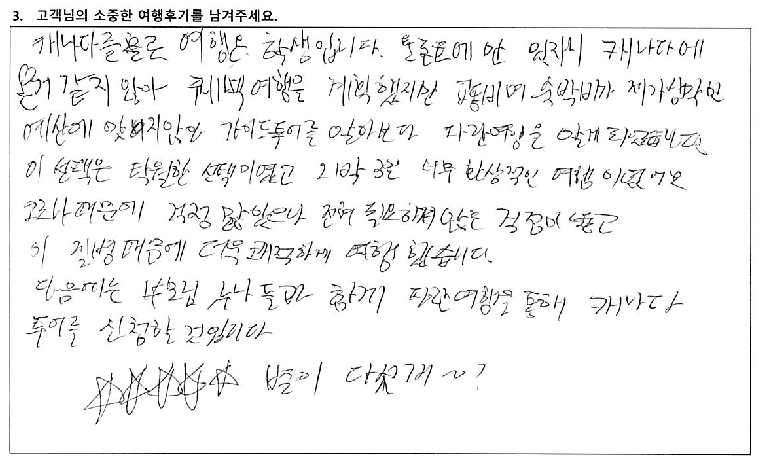 3. 고객님의 소중한 여행후기를 남겨주세요.
캐나다 여행은 학생입니다. 토론토에만 있자니 캐나다에
온거 같지 않아 퀘백 여행을 계획했지만 교통비며 숙박비가 제가생각한
예산에 맞지않아 가이드투어를 알아보다 파란여행을 알게 되었습니다
이 선택은 탁월한 선택이였고 2박 3일 너무 환상적인 여행이였어요
코로나때문에 걱정 많았으나 전혀 필요하지 않은 걱정이였고
이 질병때문에 더욱 쾌적하게 여행했습니다.
다음에는 부모님 누나들과 함께 파란여행을 통해 캐나다
투어를 신청할것입니다
☆☆☆☆☆ 별이 다섯개~?